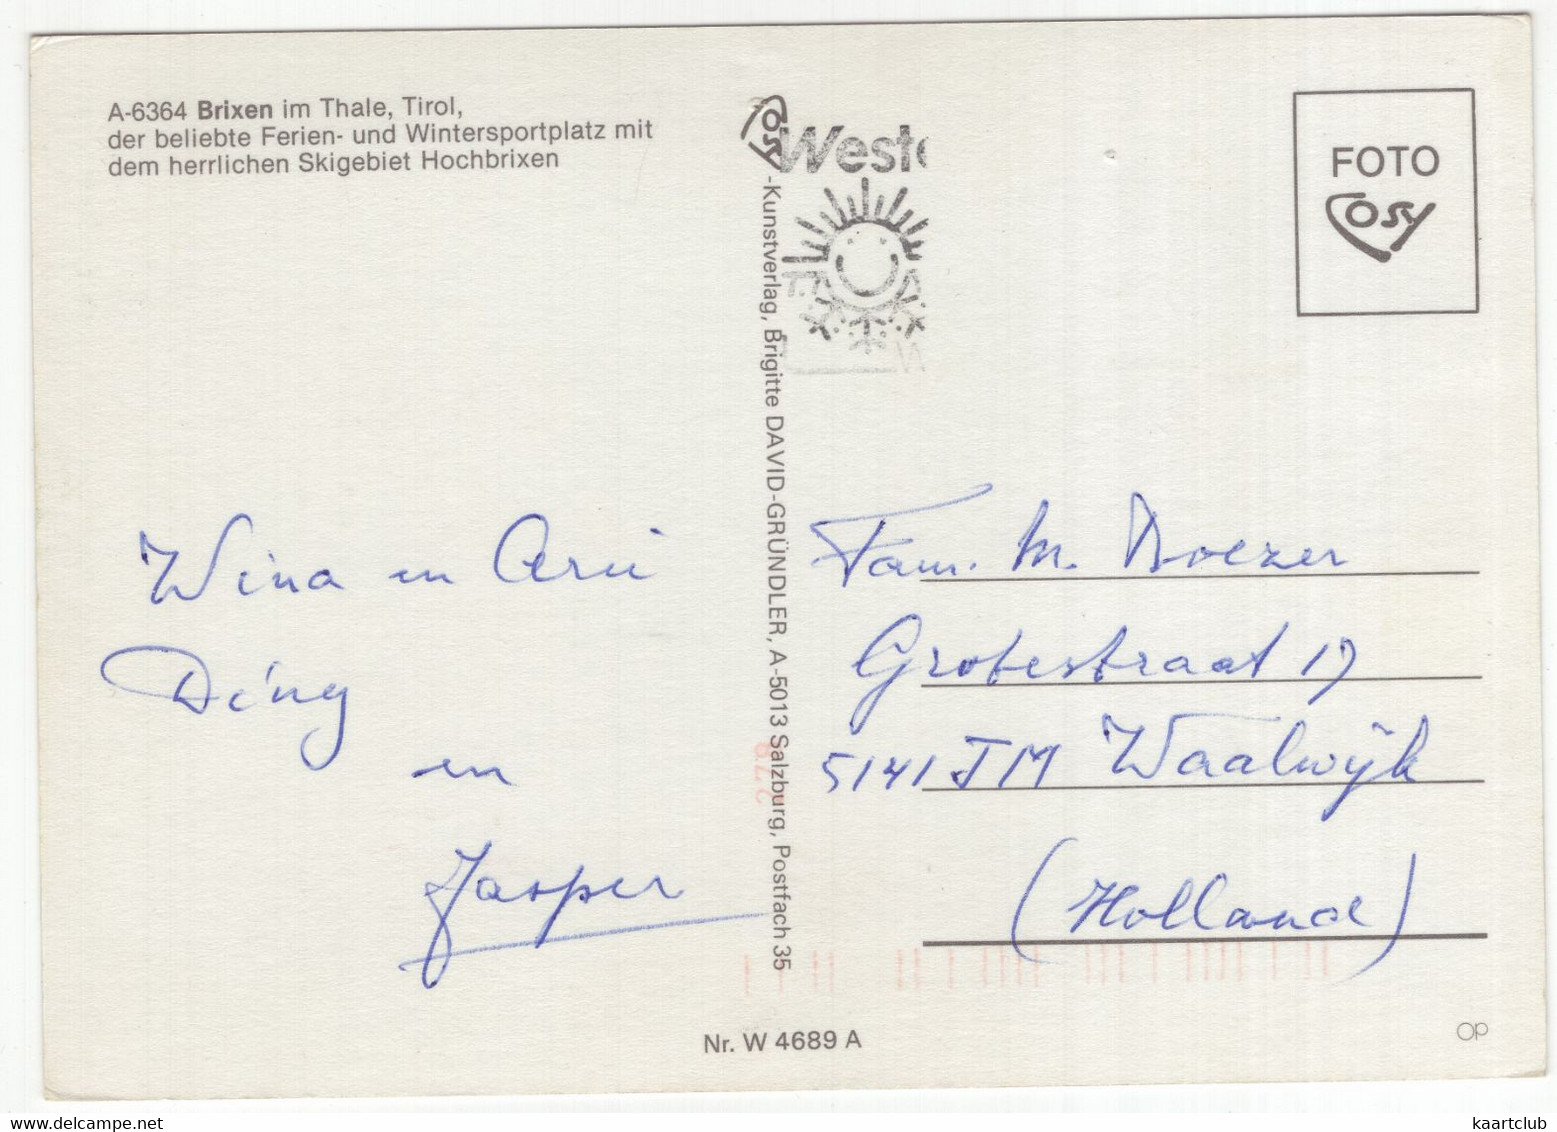 A-6364 Brixen im Thale, Tirol,
der beliebte Ferien- und Wintersportplatz mit
dem herrlichen Skigebiet Hochbrixen
Wina en Arie
Diny
en
Jasper
Cosy-Kunstverlag, Brigitte DAVID-GRÜNDLER, A-5013 Salzburg, Postfach 35
West
FOTO
COSY
Fam. M.
Grotestraat 17
5141 JM Waalwijk
(Holland)
Nr. W 4689 A
OP
kaartclub